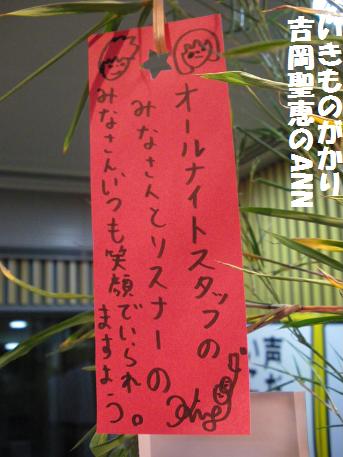 いきものがかり
吉岡聖恵のANN
オールナイトスタッフの
みなさんとリスナーの
みなさん、いつも笑顔でいられ
ますよう。